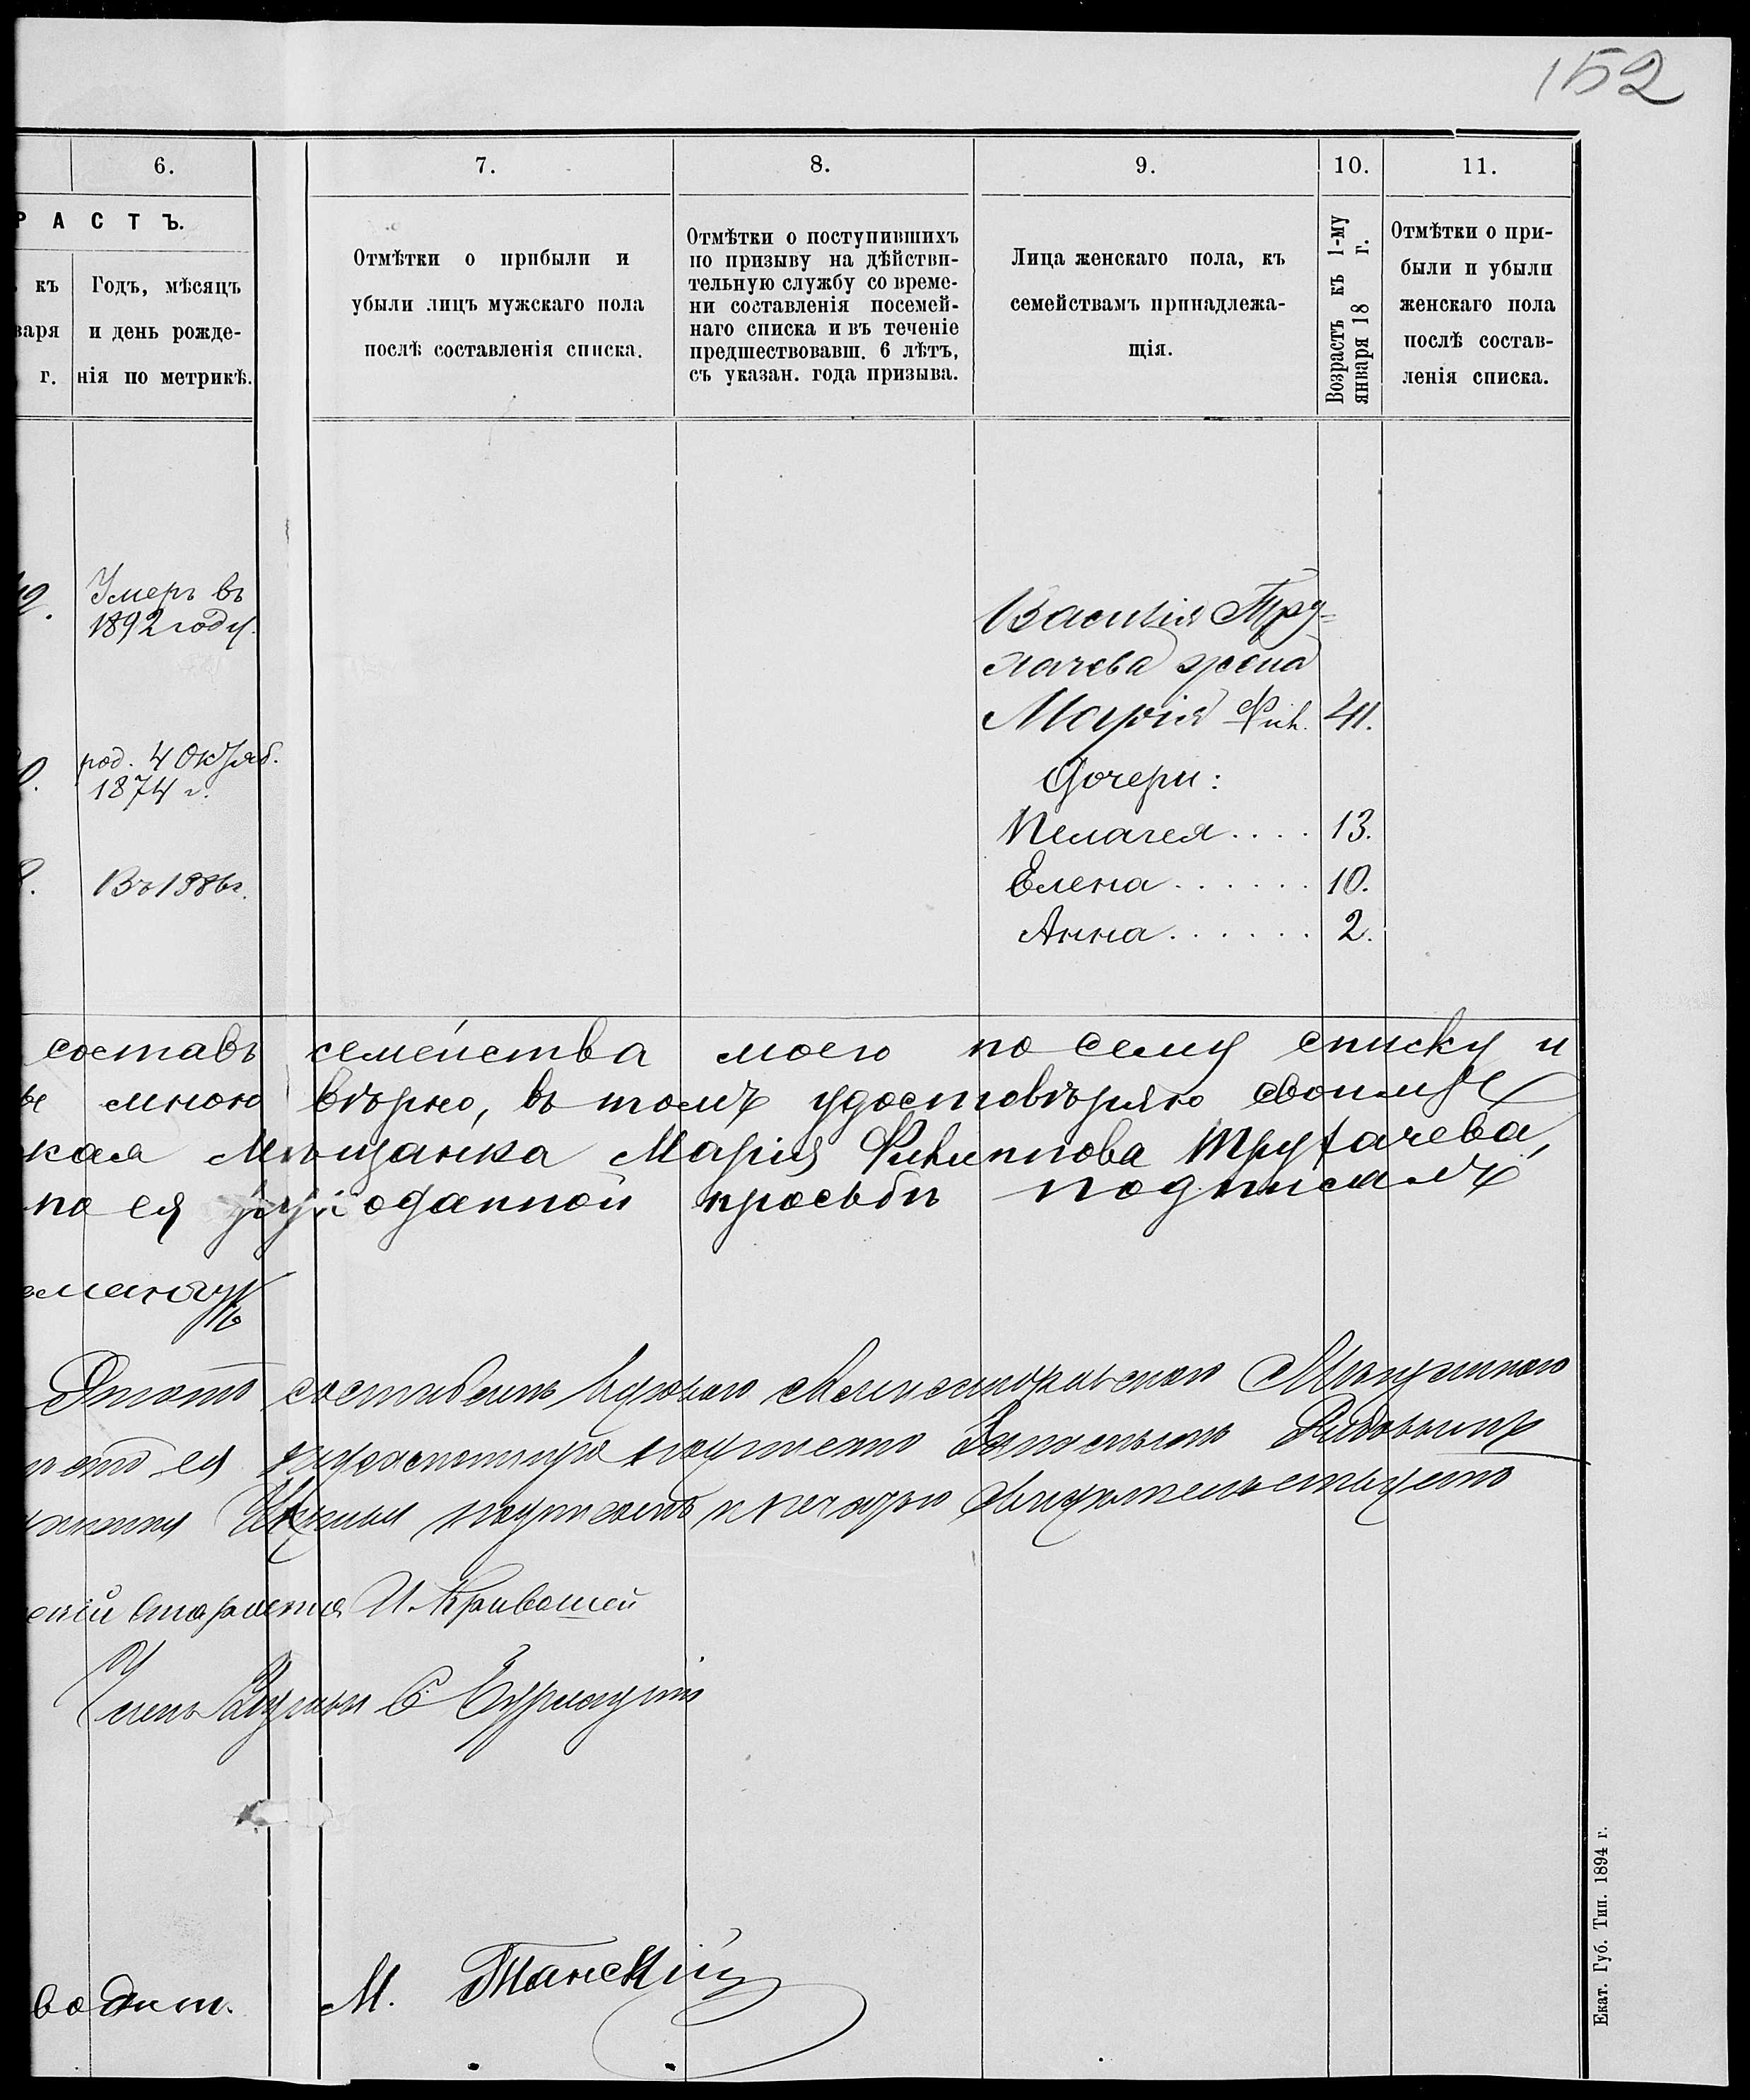 152
6.
7.
8.
9.
10.
11.
Р А С Т Ъ.
къ
варя
г.
Годъ, мѣсяцъ
и день рожде-
нія по метрикѣ.
Отмѣтки о прибыли и
убыли лицъ мужскаго пола
послѣ составленія списка.
Отмѣтки о поступившихъ
по призыву на дѣйстви-
тельную службу со време-
ни составленія посемей-
наго списка и въ теченіе
предшествовавш. 6 лѣтъ,
съ указан. года призыва.
Лица женскаго пола, къ
семействамъ принадлежа-
щія.
Возрастъ къ 1-му
января 18 г.
Отмѣтки о при-
были и убыли
женскаго пола
послѣ состав-
ленія списка.
Умеръ въ
1892 году.
род. 4 Октяб.
1874 г.
Въ 1886 г.
Василія Тру-
хачева жена
Марія Фил. 41.
Дочери:
Пелагея .... 13.
Елена ...... 10.
Анна ...... 2.
составъ семейства моего по сему списку и
мною вѣрно, въ томъ удостовѣряю
кая Мѣщанка Марія Филиппова Трухачева,
по ея рукоданной просьбѣ подписалъ
Этотъ составленъ Мѣщанскою
подписью и печатью свидѣтельствуетъ
Староста И. Кривошей
Членъ Управы
водит. М. Танскій
Екат. Губ. Тип. 1894 г.